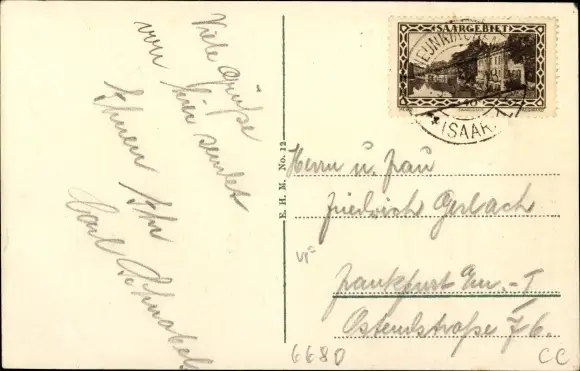 Viele Grüße
von hier sendet
Ihnen Ihr
Carl Schnabel
E. H. M. No. 12
SAARGEBIET
NEUNKIRCHEN
* (SAAR)
Herrn u. Frau
Friedrich Gerlach
Frankfurt M.-I
Ostendstraße 76.
6680
CC